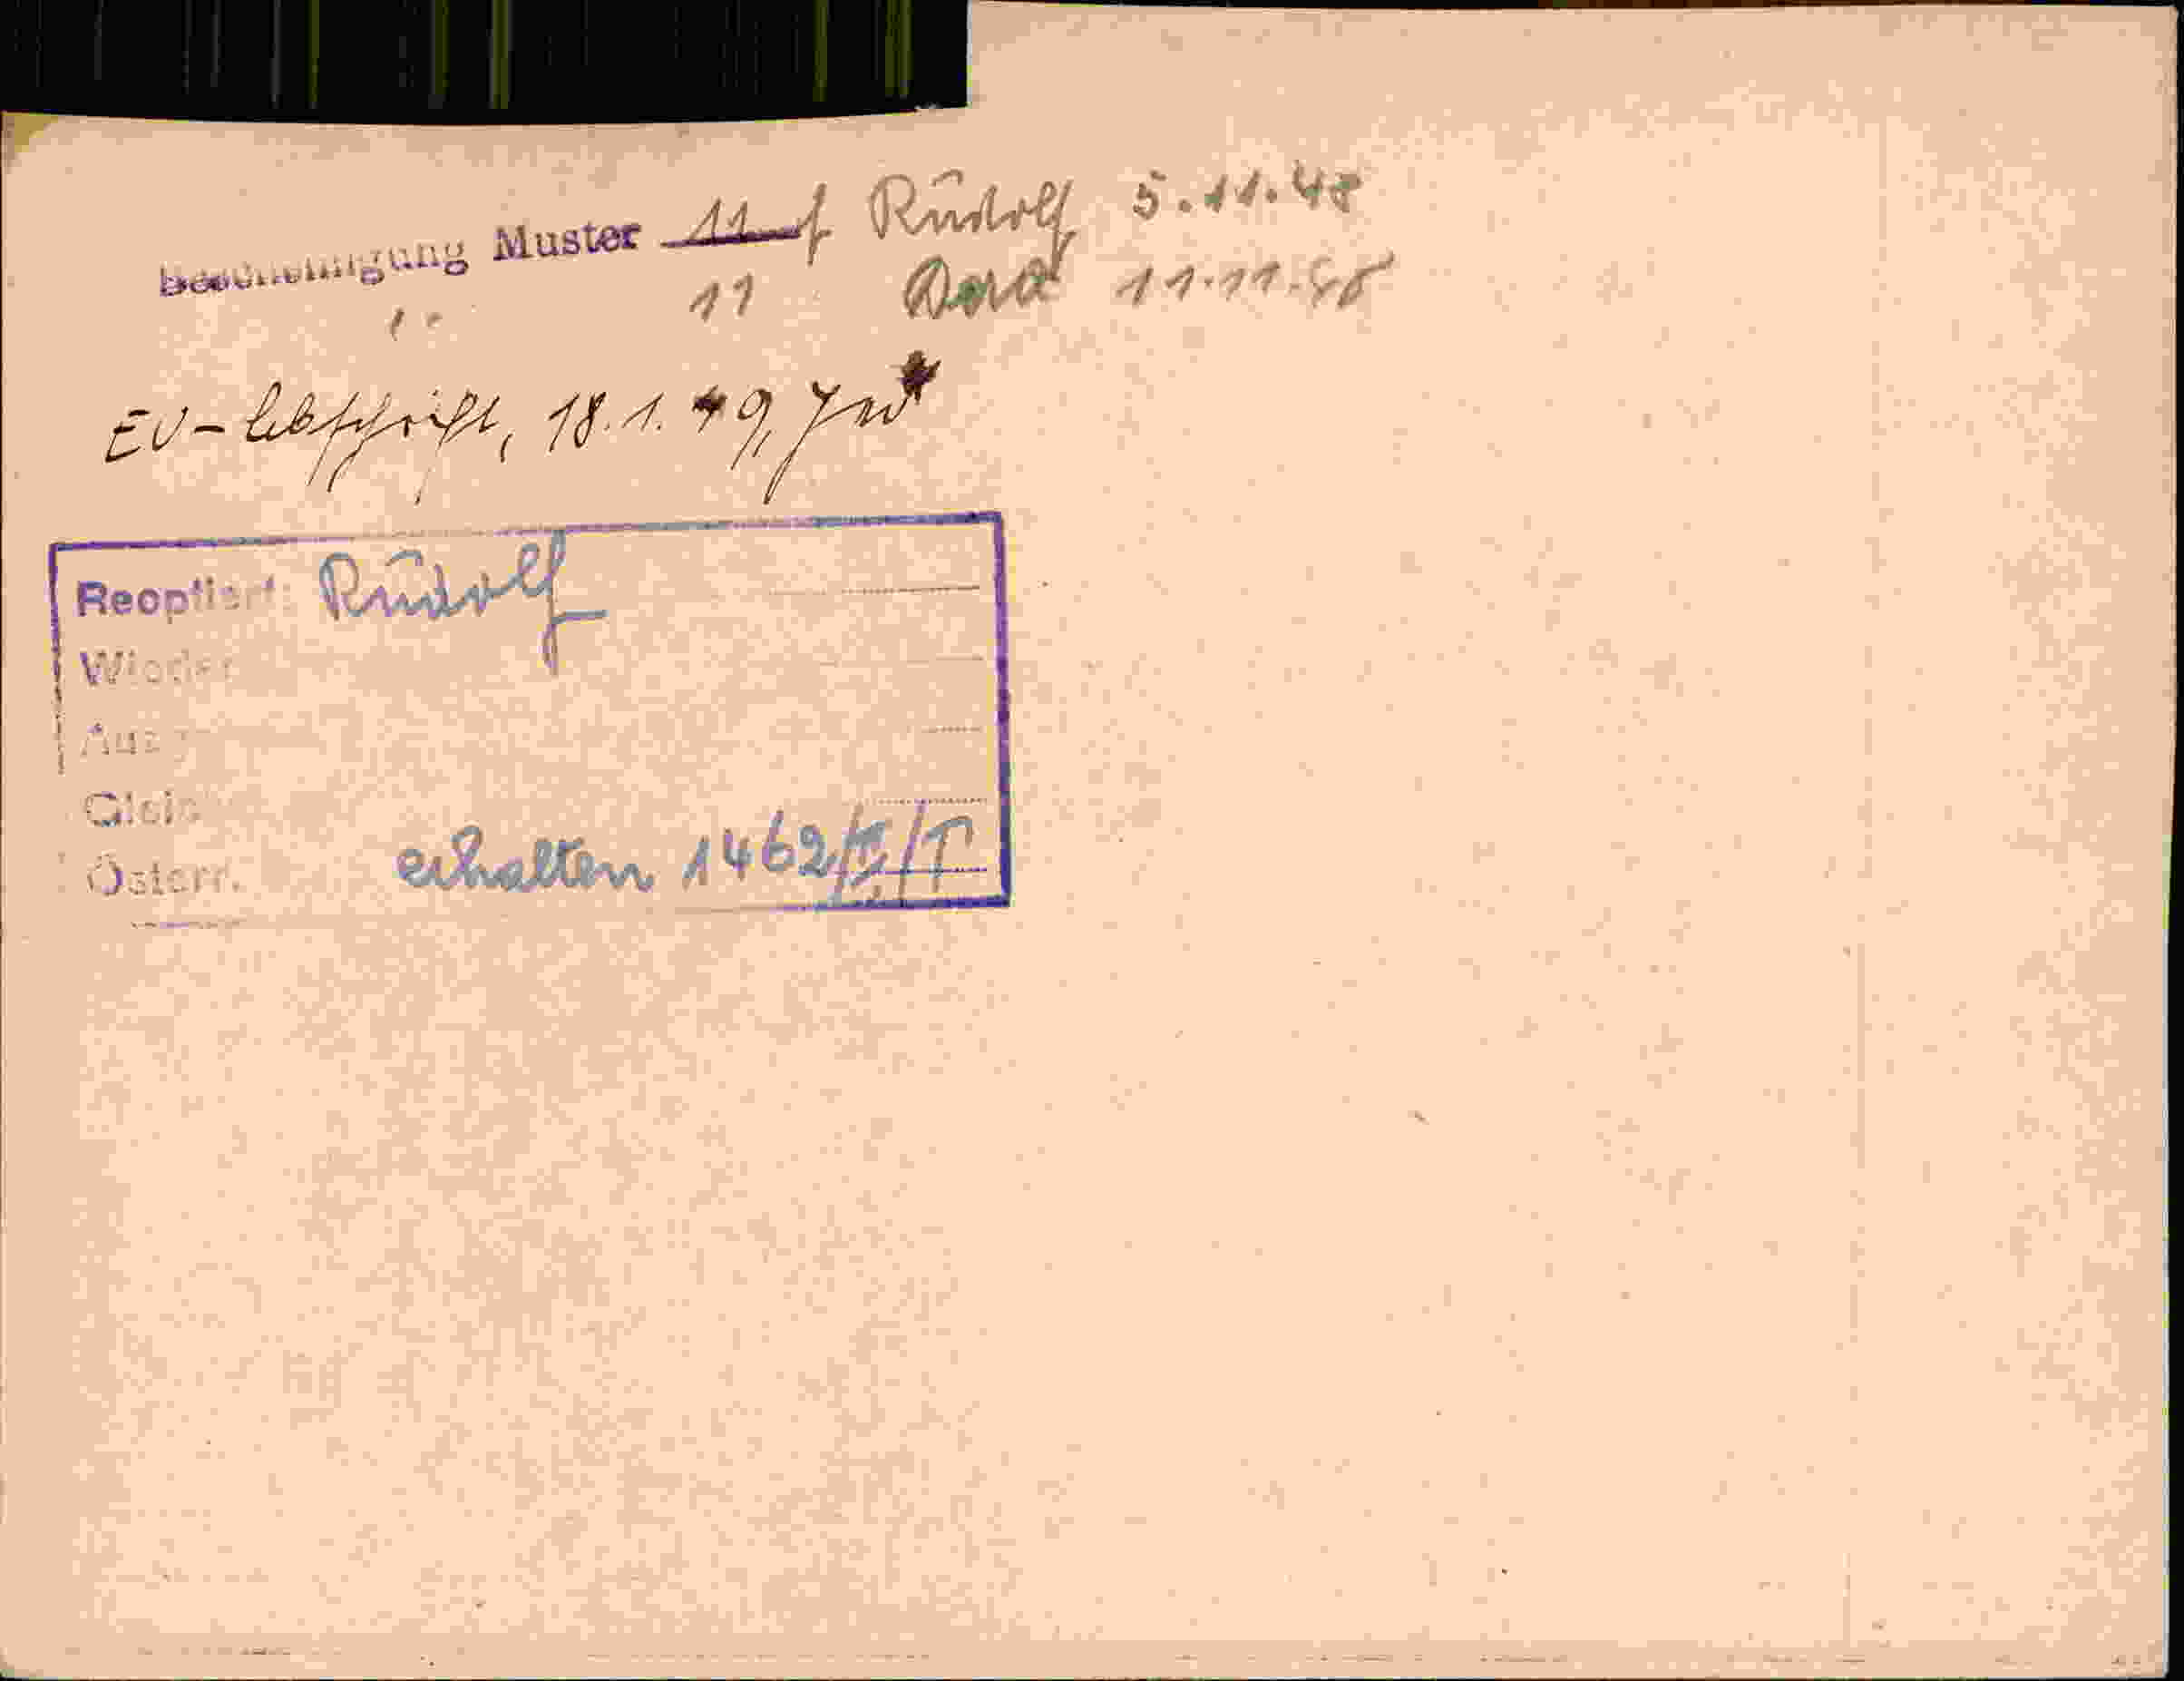 Bescheinigung Muster 11 f Rudolf 5.11.48
" 11 Dora 11.11.48
EV-Abschrift, 18.1.49,
Reoptiert: Rudolf
Österr. erhalten 1462/